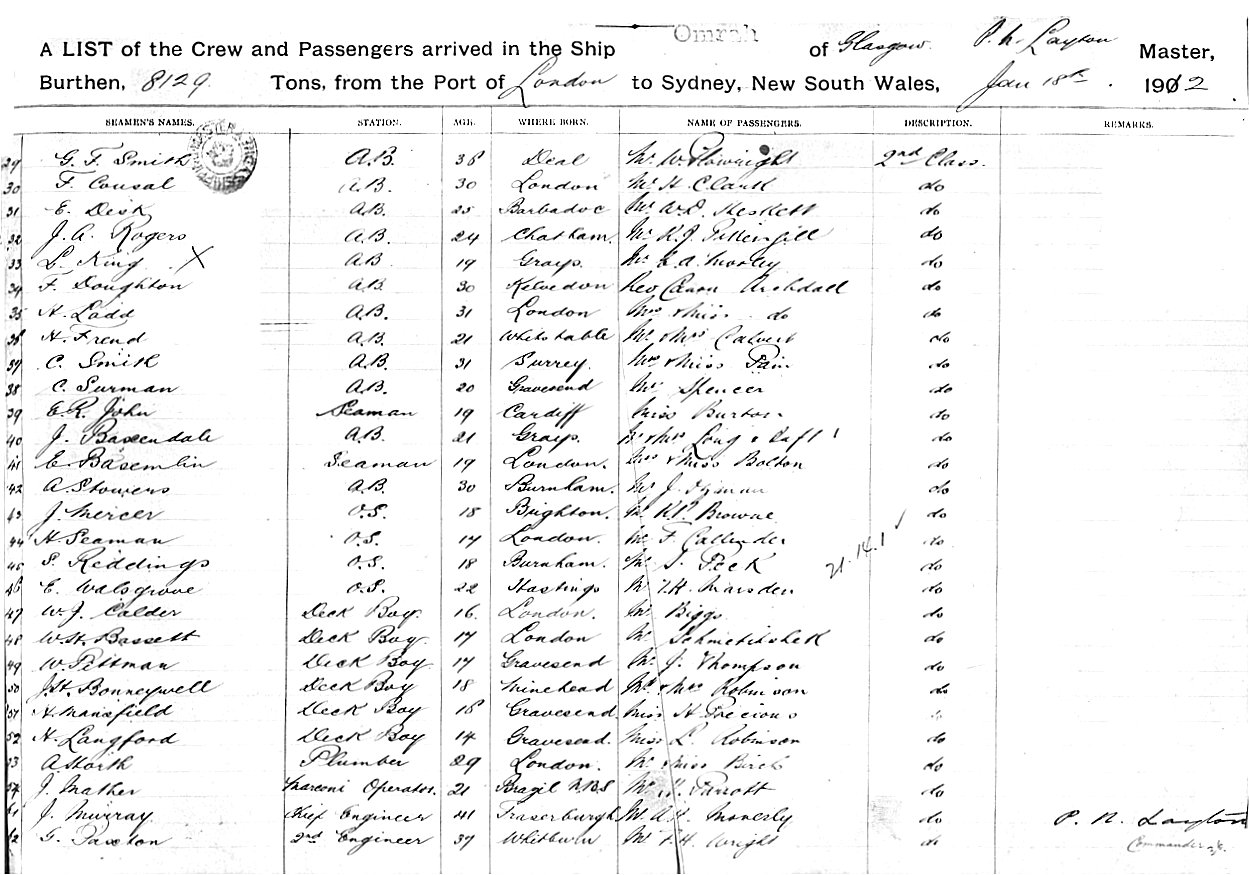 Omrah
A LIST of the Crew and Passengers arrived in the Ship of Glasgow P. N. Layton Master,
Burthen, 8129 Tons, from the Port of London to Sydney, New South Wales, Jan 18th. 1912
SEAMEN'S NAMES. STATION. AGE. WHERE BORN. NAME OF PASSENGERS. DESCRIPTION. REMARKS.
29 G. F. Smith A.B. 38 Deal Mr W Plowright 2nd Class.
30 F. Cousal A.B. 30 London Mr H. Clark do
31 E. Desk A.B. 25 Barbadoe Mr W.D. Heskett do
32 J. A. Rogers A.B. 24 Chatham. Mr K. J. Pittengill do
33 L. King X A.B. 19 Grays. Mr E. A. Morley do
34 F. Doughton A.B. 30 Kelvedon Rev Canon Archdall do
35 H. Ladd A.B. 31 London Mrs & Miss do do
36 H. Frend A.B. 21 Whitstable Mr & Mrs Calvert do
37 C. Smith A.B. 31 Surrey. Mrs & Miss Pain do
38 C. Surman A.B. 20 Gravesend Mr Spencer do
39 E R. John Seaman 19 Cardiff Miss Burton do
40 J. Baxendale A.B. 21 Grays. Mr & Mrs Long & do
41 E. Basemlin Seaman 19 London. Mrs & Miss Bolton do
42 A. Stowers A.B. 30 Burnham. Mr J. do
43 J. Mercer O.S. 18 Brighton. Mr Browne do
44 H. Seaman O.S. 17 London. Mr F. Callender do
45 S. Reddings O.S. 18 Burnham. Mr J. Peck 21.14.1 do
46 E. Walsgrove O.S. 22 Hastings Mr T. H. Marsden do
47 W. J. Calder Deck Boy. 16 London. Mr Biggs do
48 W. H. Bassett Deck Boy. 17 London Mr do
49 W. Pittman Deck Boy. 17 Gravesend Mr J. Thompson do
50 J. H. Bonneywell Deck Boy 18 Minehead Mr & Mrs Robinson do
51 H. Mansfield Deck Boy 18 Gravesend Miss H Precious do
52 H. Langford Deck Boy 14 Gravesend. Miss L. Robinson do
53 A North Plumber 29 London. Mr & Miss Birch do
54 J. Mather Marconi Operator. 21 Brazil N.B.S Mr Parrott do
61 J. Murray. Chief Engineer 41 Fraserburgh Mr A. Moverly do P. N. Layton
62 G. Paxton 2nd Engineer 37 Whitburn Mr F. H. Wright do Commander